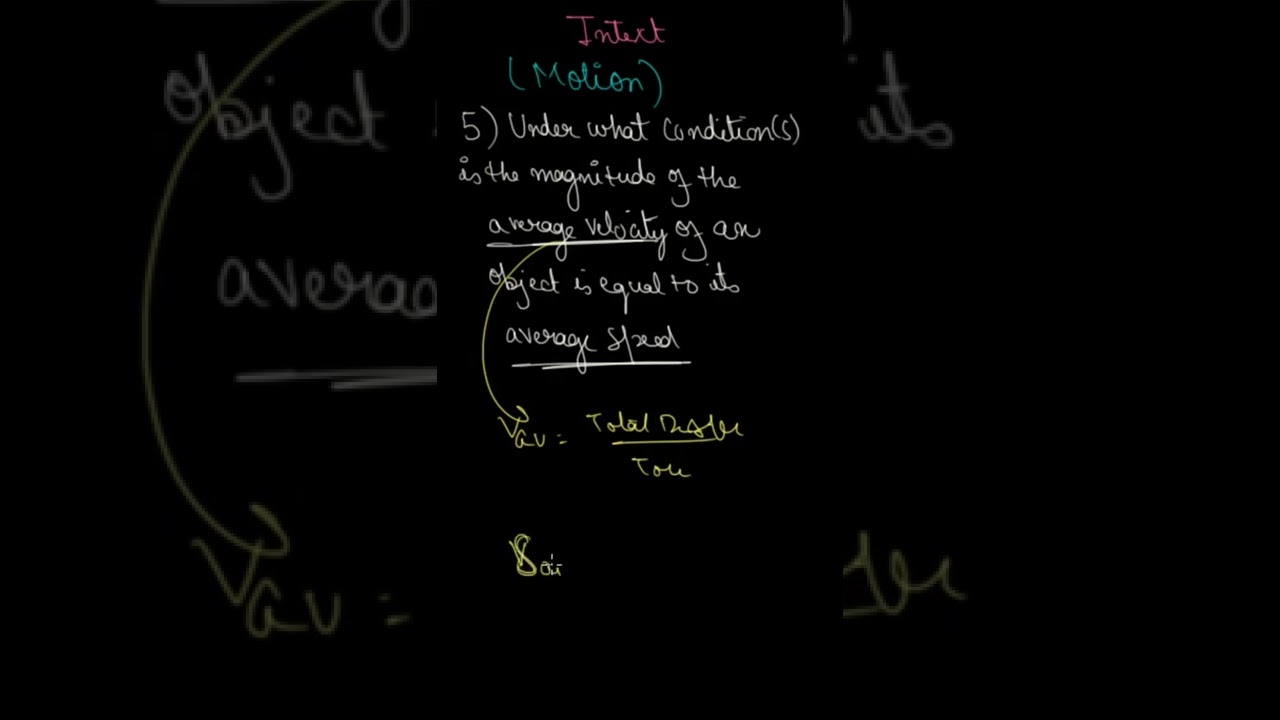 Intext
(Motion)
5) Under what condition(s)
is the magnitude of the
average velocity of an
object is equal to its
average speed
Vav = Total
object
its
Vav =